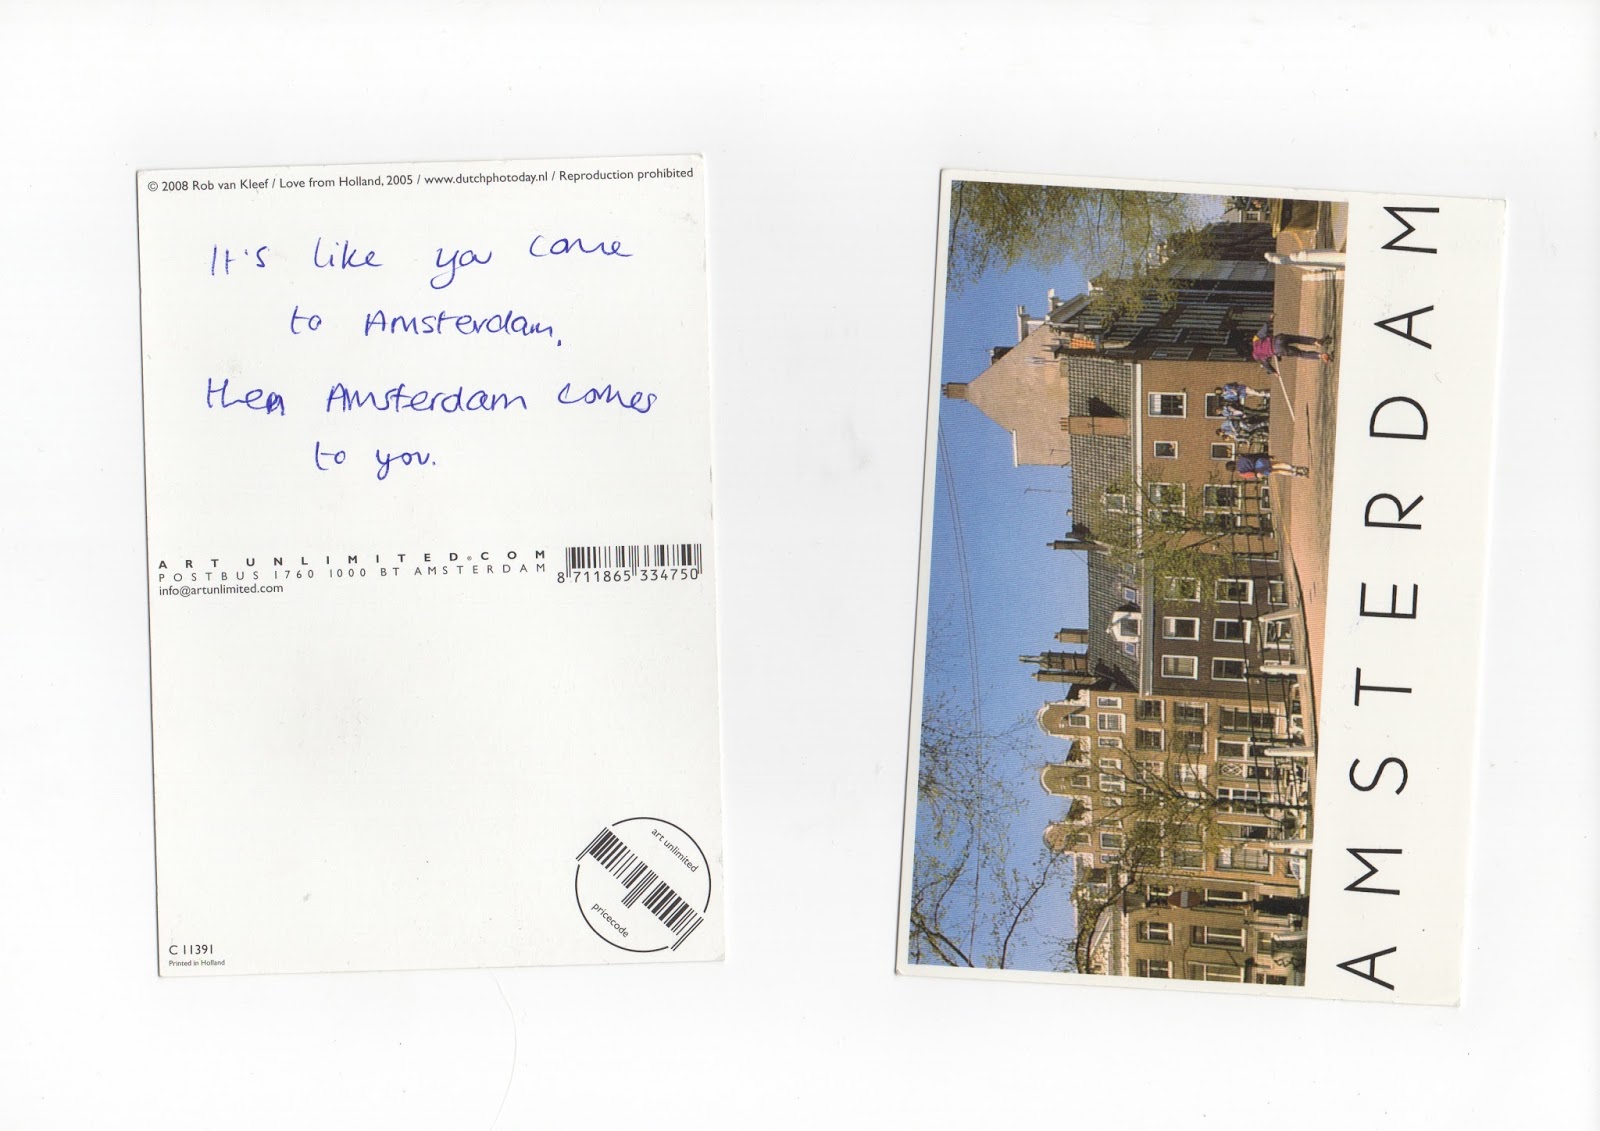 © 2008 Rob van Kleef / Love from Holland, 2005 / www.dutchphotoday.nl / Reproduction prohibited
It's like you come
to Amsterdam,
then Amsterdam comes
to you.
ART UNLIMITED.COM
POSTBUS 1760 1000 BT AMSTERDAM
info@artunlimited.com
8 711865 334750
art unlimited
pricecode
C 11391
Printed in Holland
AMSTERDAM